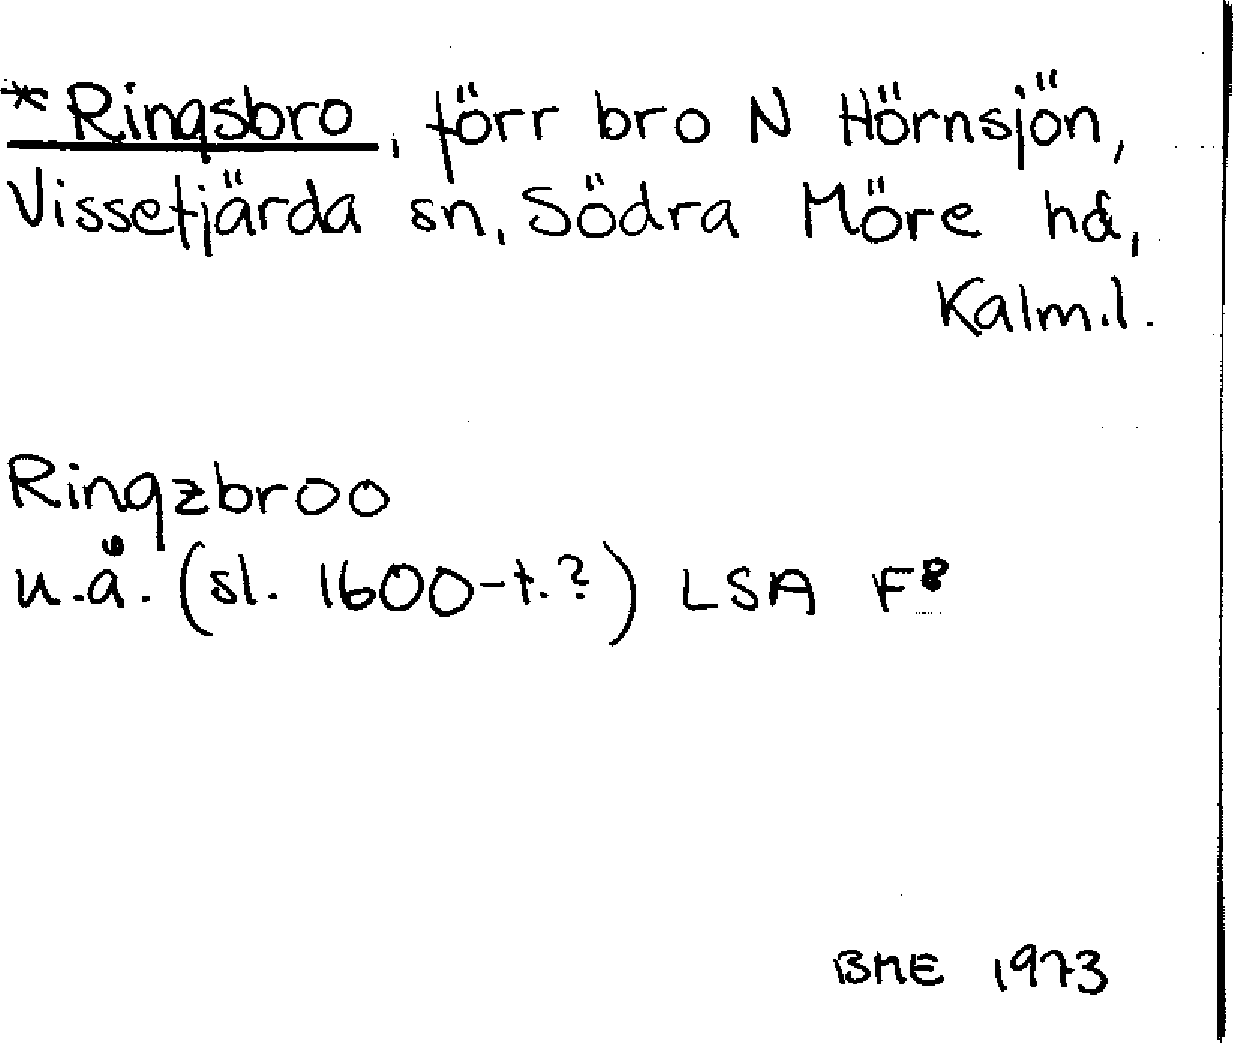 *Ringsbro, förr bro N Hörnsjön,
Vissefjärda sn, Södra Möre hd,
Kalm.l.
Ringzbroo
u.å. (sl. 1600-t.?) LSA F8
BME 1973